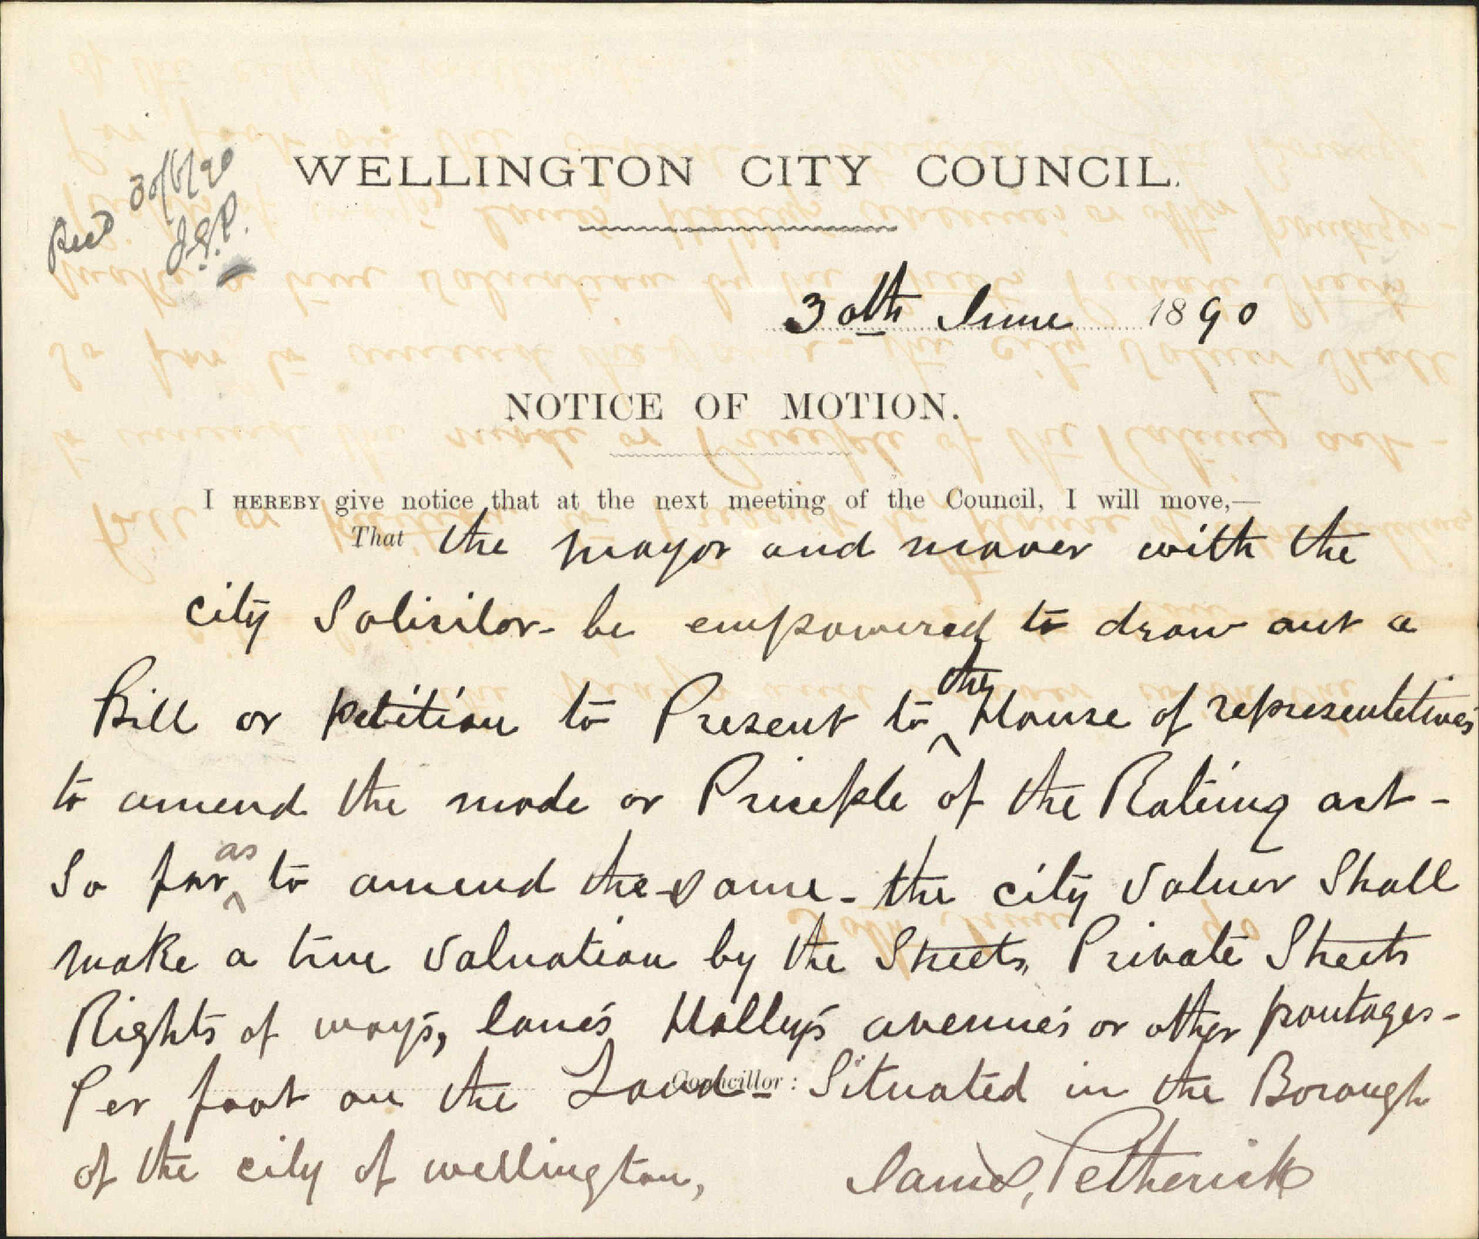 Recd 30/6/90
J.G.P.
WELLINGTON CITY COUNCIL.
30th June 1890
NOTICE OF MOTION.
I HEREBY give notice that at the next meeting of the Council, I will move,—
That the mayor and mover with the
city Solisitor - be empowered to draw out a
Bill or petition to Present to the House of representetives
to amend the mode or Princple of the Rateing act -
So far as to amend the same - the city Valuer Shall
make a true Valuation by the Streets, Private Streets
Rights of ways, lane's Halley's avenue's or other frontages -
Per foot on the Land Situated in the Borough
Councillor:
of the city of wellington, James, Petherick